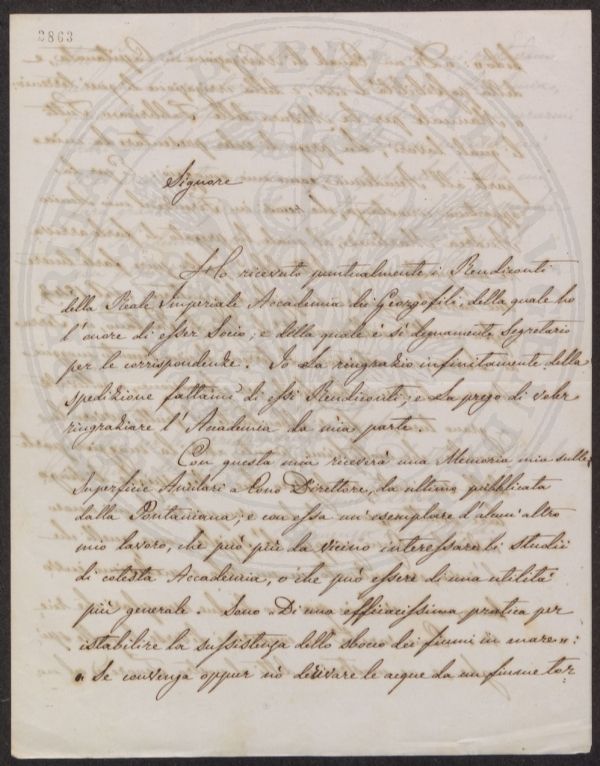 2863
Signore
Ho ricevuto puntualmente i Rendiconti
della Reale Imperiale Accademia dei Georgofili, della quale ho
l'onore di esser Socio; e della quale è sì degnamente Segretario
per le corrispondenze. Io La ringrazio infinitamente della
spedizione fattami di essi Rendiconti; e La prego di voler
ringraziare l'Accademia da mia parte.
Con questa mia riceverà una Memoria mia sulle
Superficie Ausiliari a Cono Direttore, da ultimo pubblicata
dalla Pontaniana; e con essa un'esemplare d'alcun'altro
mio lavoro, che può più da vicino interessare li studii
di cotesta Accademia, o che può essere di una utilità
più generale. Sono "Di una efficacissima pratica per
istabilire la sussistenza dello sbocco dei fiumi in mare":
" Se convenga oppur nò derivare le acque da un fiume tor=